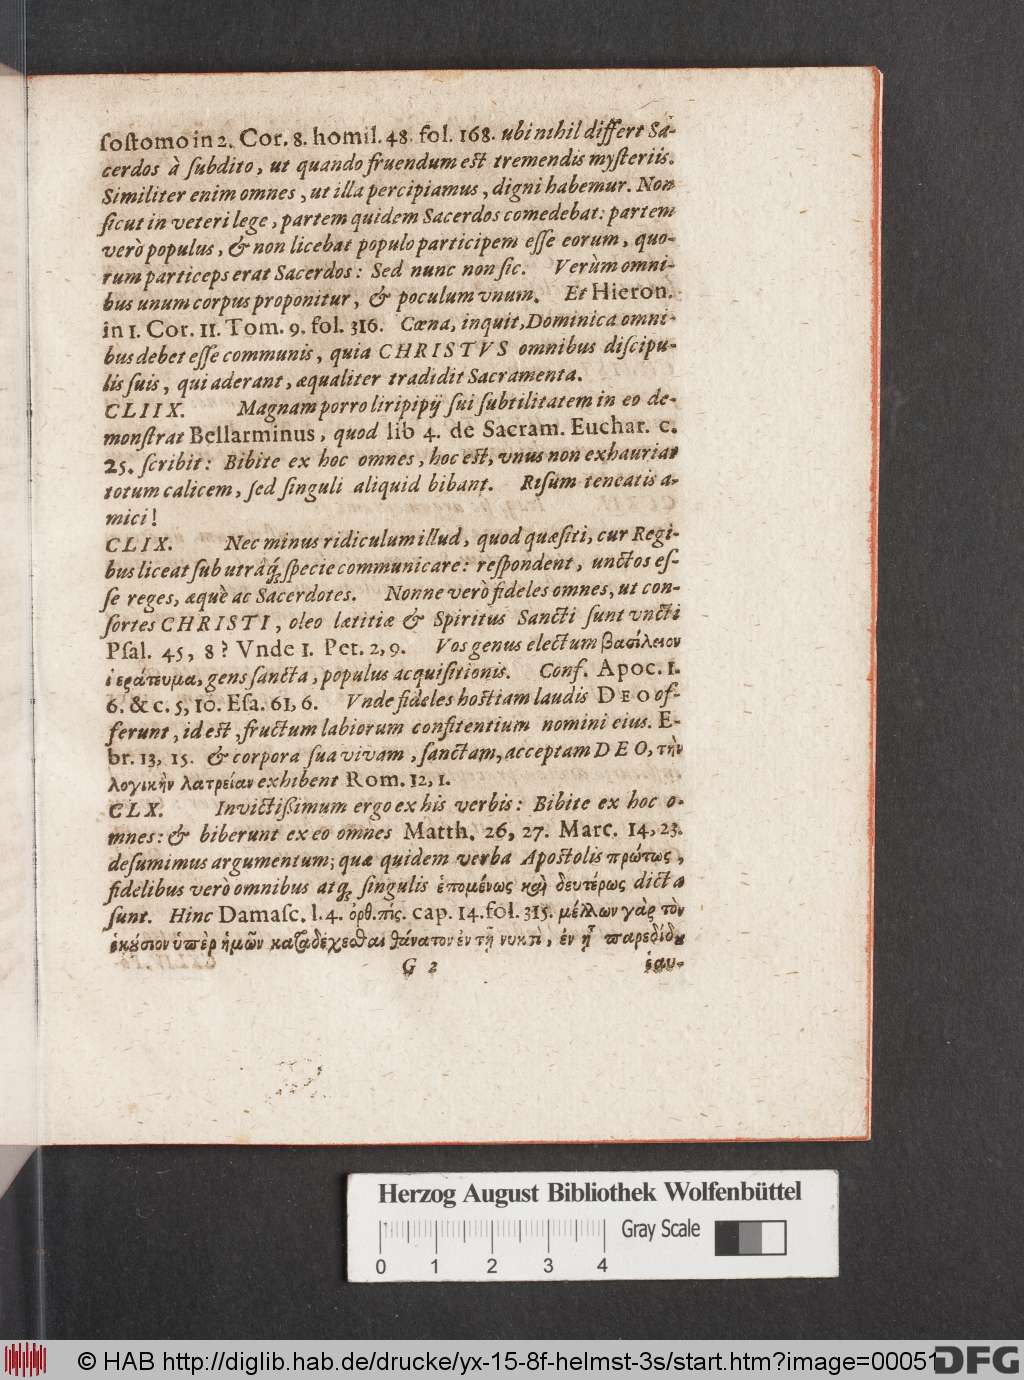 ſoſtomo in 2. Cor. 8. homil. 48. fol. 168. ubi nihil differt Sa-
cerdos à ſubdito, ut quando fruendum eſt tremendis myſteriis.
Similiter enim omnes, ut illa percipiamus, digni habemur. Non
ſicut in veteri lege, partem quidem Sacerdos comedebat: partem
verò populus, & non licebat populo participem eſſe eorum, quo-
rum particeps erat Sacerdos: Sed nunc non ſic. Verùm omni-
bus unum corpus proponitur, & poculum vnum. Et Hieron.
in 1. Cor. 11. Tom. 9. fol. 316. Cœna, inquit, Dominica omni-
bus debet eſſe communis, quia CHRISTVS omnibus diſcipu-
lis ſuis, qui aderant, æqualiter tradidit Sacramenta.
CLIIX. Magnam porro liripipij ſui ſubtilitatem in eo de-
monſtrat Bellarminus, quod lib 4. de Sacram. Euchar. c.
25. ſcribit: Bibite ex hoc omnes, hoc eſt, vnus non exhauriat
totum calicem, ſed ſinguli aliquid bibant. Riſum teneatis a-
mici!
CLIX. Nec minus ridiculum illud, quod quæſiti, cur Regi-
bus liceat ſub utrâq́; ſpecie communicare: reſpondent, unctos eſ-
ſe reges, æquè ac Sacerdotes. Nonne verò fideles omnes, ut con-
ſortes CHRISTI, oleo lætitiæ & Spiritus Sancti ſunt vncti
Pſal. 45, 8? Vnde 1. Pet. 2, 9. Vos genus electum βασίλειον
ἱεράτευμα, gens ſancta, populus acquiſitionis. Conf. Apoc. 1.
6. & c. 5, 10. Eſa. 61, 6. Vnde fideles hoſtiam laudis DEO of-
ferunt, id eſt, fructum labiorum confitentium nomini eius. E-
br. 13, 15. & corpora ſua vivam, ſanctam, acceptam DEO, τὴν
λογικὴν λατρείαν exhibent Rom. 12, 1.
CLX. Invictißimum ergo ex his verbis: Bibite ex hoc o-
mnes: & biberunt ex eo omnes Matth. 26, 27. Marc. 14, 23.
deſumimus argumentum; quæ quidem verba Apoſtolis πρώτως,
fidelibus verò omnibus atq; ſingulis ἑπομένως καὶ δευτέρως dicta
ſunt. Hinc Damaſc. l. 4. ὀρθ. πίς. cap. 14. fol. 315. μέλλων γὰρ τὸν
ἑκούσιον ὑπὲρ ἡμῶν καταδέχεσθαι θάνατον ἐν τῇ νυκτὶ, ἐν ᾗ παρεδίδου
G 2 ἑαυ-
Herzog August Bibliothek Wolfenbüttel
Gray Scale
0 1 2 3 4
© HAB http://diglib.hab.de/drucke/yx-15-8f-helmst-3s/start.htm?image=00051
DFG